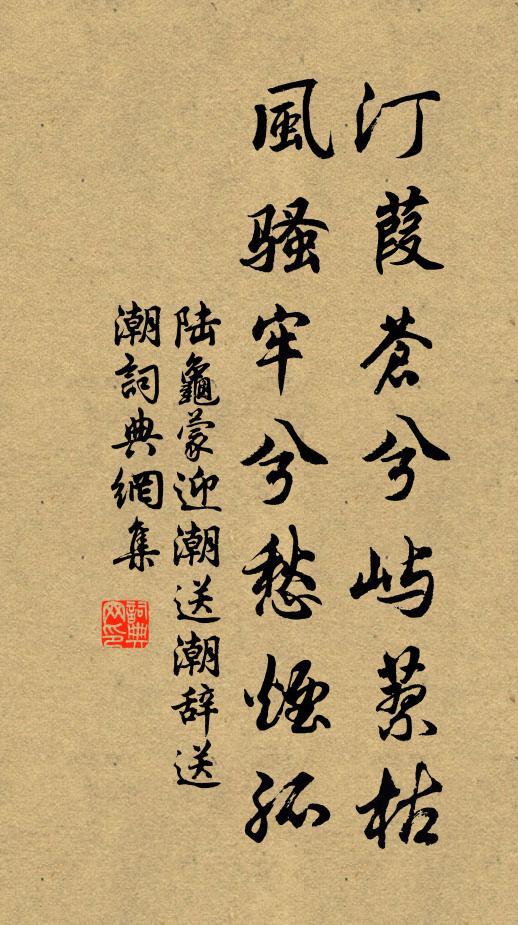 汀葭蒼兮嶼蓼枯
風騷牢兮愁煙孤
陆龜蒙迎潮送潮辞送
潮詞典網集
詞典網印